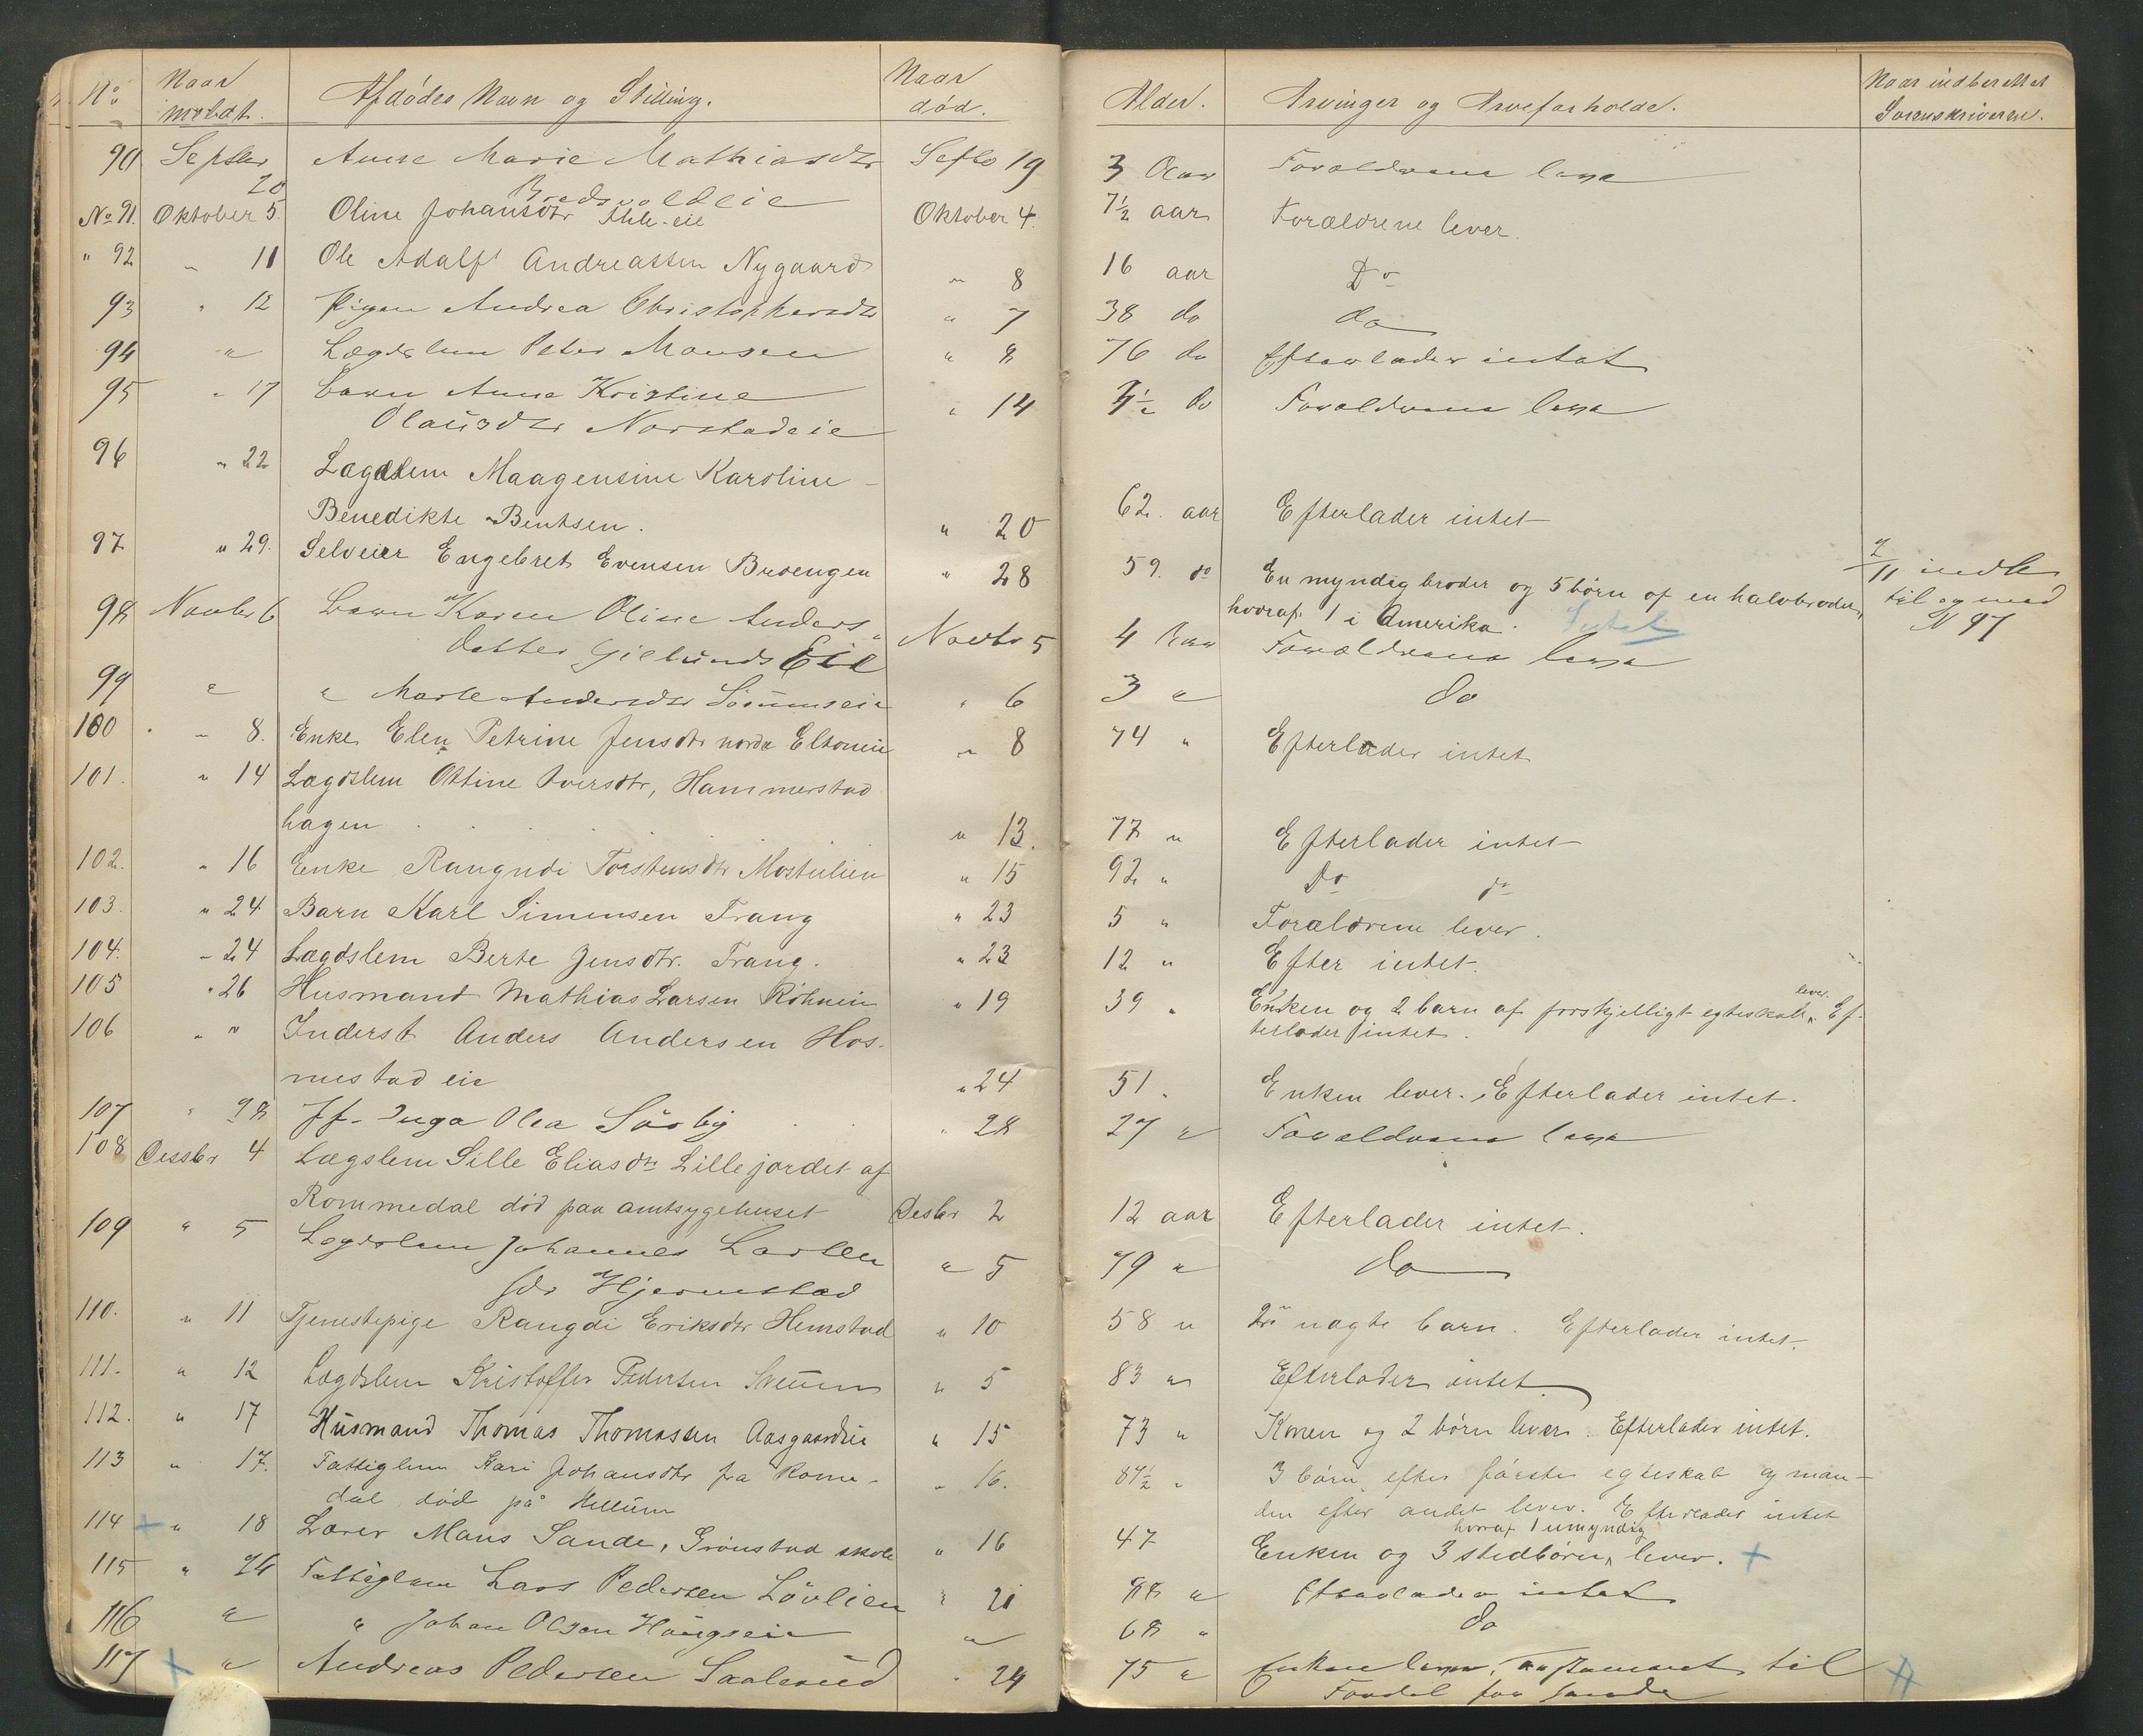 No Naar meldt. Afdødes Navn og Stilling. Naar død. Alder. Arvinger og Arveforholde. Naar indberettet Sorenskriveren.
90 Septbr 20 Anne Marie Mathiasdtr Septb 19 3 Forældrene leve
Bredvoldeie
No 91. Oktober 5. Oline Johansdtr Oktober 4. 7½ aar Forældrene lever.
" 92 " 11 Ole Adolf Andreassen Nygaard " 8 16 aar Do
93 " 12 Pigen Andrea Christophersdtr " 7 38 do do
94 " Lægdslem Peter Monsen " 8 76 do Efterlader intet
95 " 17 Barn Anne Kristine " 14 ½ do Forældrene leve
Olausdtr Norstadeie
96 " 22 Lægdslem Maagensine Karoline
Benedikte Bentsen. " 20 62 aar Efterlader intet
97 " 29. Selveier Engebret Evensen Broengen " 28 59. do En myndig broder og 5 børn af en halvbroder, 2/11 indb
hvoraf 1 i Amerika. til og med
N 97
98 Novbr 6 Barn Karen Oline Anders Novbr 5 4 Aar Forældrene leve
datter Gielunds Eie
99 " " Marte Andersdtr " 6 3 " do
100 " 8. Enke Elen Petrine Jensdtr nordre Eltoneie " 8 74 " Efterlader intet
101. " 14 Lægdslem Ottine Iversdtr, Hammerstad
hagen " 13. 77 " Efterlader intet
102. " 16 Enke Rangndi Torstensdtr Mostulien " 15 92 " Do do
103. " 24 Barn Karl Simensen Trang " 23 5 " Forældrene lever.
104. " 24 Lægdslem Berte Jensdtr. Trang. " 23 12 " Efter intet.
105 " 26 Husmand Mathias Larsen Röhneie " 19 39 " Enken og 2 barn af forskjelligt egteskab lever. Ef-
terlader intet.
106 " " Inderst Anders Andersen Hos-
mestad eie " 24 51 " Enken lever. Efterlader intet.
107 " 28 Jf. Inga Olea Sörby " 28 27 " Forældrene leve
108 Dessbr 4 Lægslem Sille Eliasdtr Lillejordet af
Rommedal död paa amtsygehuset Desbr 2 12 aar Efterlader intet.
109 " 5 Legdslem Johannes Larsen " 5 79 " do
sdr Hjermstad
110. " 11 Tjenestepige Rangdi Eriksdtr Hemstad " 10 58 " 2 uægte barn. Efterlader intet.
111. " 12 Lægdslem Kristoffer Pedersen Sveum " 5 83 " Efterlader intet.
112. " 17 Husmand Thomas Thomassen Aasgaardeie " 15 73 " Konen og 2 börn lever. Efterlader intet.
113 " 17. Fattiglem Kari Johansdtr fra Rome- " 16. 84½ " 3 börn efter förste egteskab og man-
dal död på Hellum den efter andet lever. Efterlader intet
114 + " 18 Lærer Mons Sande, Grönstad skole " 16 47 Enken og 3 stedbörn, hvoraf 1 umyndig lever. +
115 " 24 Fattiglem Lars Pedersen Lövlien " 21 88 " Efterlader intet
116 " " Johan Olsen Haugseie " 68 " do
117 + " Andreas Pedersen Saalerud " 24 75 " Enken lever, til
Fordel for